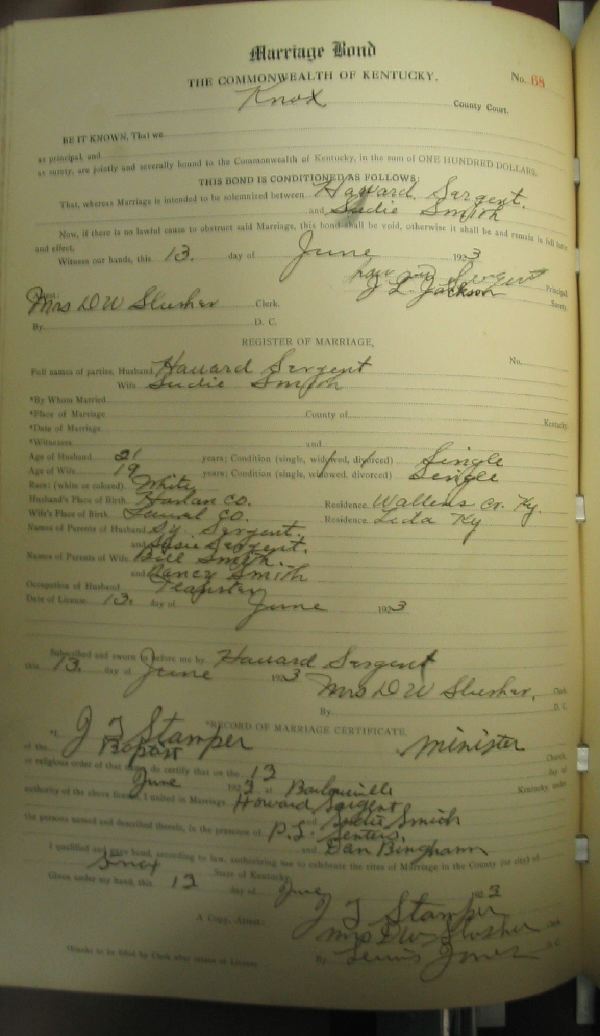 Marriage Bond
THE COMMONWEALTH OF KENTUCKY.
No. 68
Knox County Court.
BE IT KNOWN, That we
as principal, and
as surety, are jointly and severally bound to the Commonwealth of Kentucky, in the sum of ONE HUNDRED DOLLARS.
THIS BOND IS CONDITIONED AS FOLLOWS:
That, whereas Marriage is intended to be solemnized between Haward Sargent.
and Sudie Smith
Now, if there is no lawful cause to obstruct said Marriage, this bond shall be void, otherwise it shall be and remain in full force
and effect.
Witness our hands, this 13. day of June 1923
Sargent Principal
J L Jackson Surety
Mrs D W Slusher Clerk.
By D. C.
REGISTER OF MARRIAGE,
Full names of parties, Husband Haward Sargent No.
Wife Sudie Smith
*By Whom Married
*Place of Marriage County of Kentucky
*Date of Marriage
*Witnesses and
Age of Husband 21 years; Condition (single, widowed, divorced) Single
Age of Wife 19 years; Condition (single, widowed, divorced) Single
Race: (white or colored). White
Husband's Place of Birth Harlan Co. Residence Wallens Cr. Ky.
Wife's Place of Birth Laural Co. Residence Lida Ky
Names of Parents of Husband Sy Sargent.
and Susie Sargent.
Names of Parents of Wife Bill Smith.
and Nancy Smith
Occupation of Husband Teamster
Date of License 13. day of June 1923
Subscribed and sworn to before me by Haward Sargent
this 13. day of June 1923
Mrs D W Slusher, Clerk
By D. C.
*RECORD OF MARRIAGE CERTIFICATE.
*I, J J Stamper minister
of the Baptist Church,
or religious order of that name, do certify that on the 13 day of
June 1923 at Kentucky, under
authority of the above license, I united in Marriage Howard Sargent
and Sudie Smith
the persons named and described therein, in the presence of P. S. Centers,
and Dan Bingham
I qualified and gave bond, according to law, authorizing me to celebrate the rites of Marriage in the County (or city) of
Knox State of Kentucky.
Given under my hand, this 13 day of June 1923
J J Stamper
A Copy, Attest: Mrs D W Slusher Clerk
By Lewis Jones D. C.